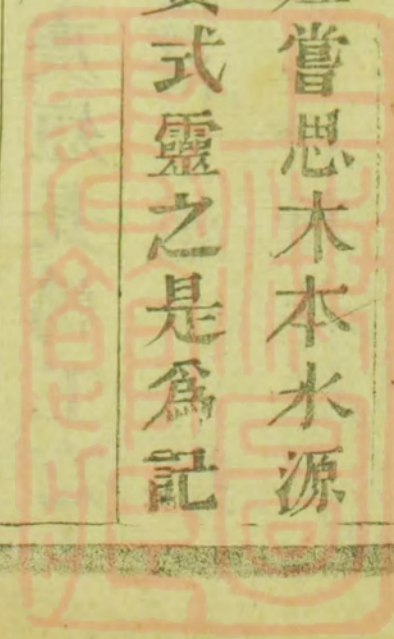 嘗思木本水源
式靈之是爲記